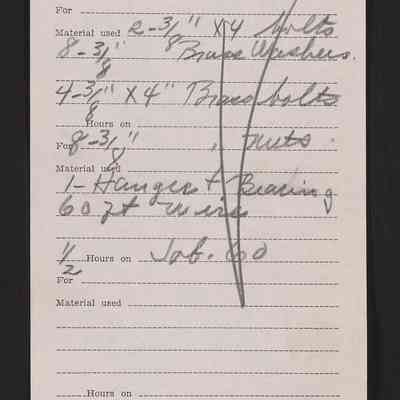 For
Material used 2-3/8" x4 bolts
8-3/8" Brass Washers.
4-3/8" x4" Brass bolts
Hours on
For 8-3/8" " nuts.
Material used
1-Hanger + Bearing
60 ft wire
1/2 Hours on Job. 60
For
Material used
Hours on